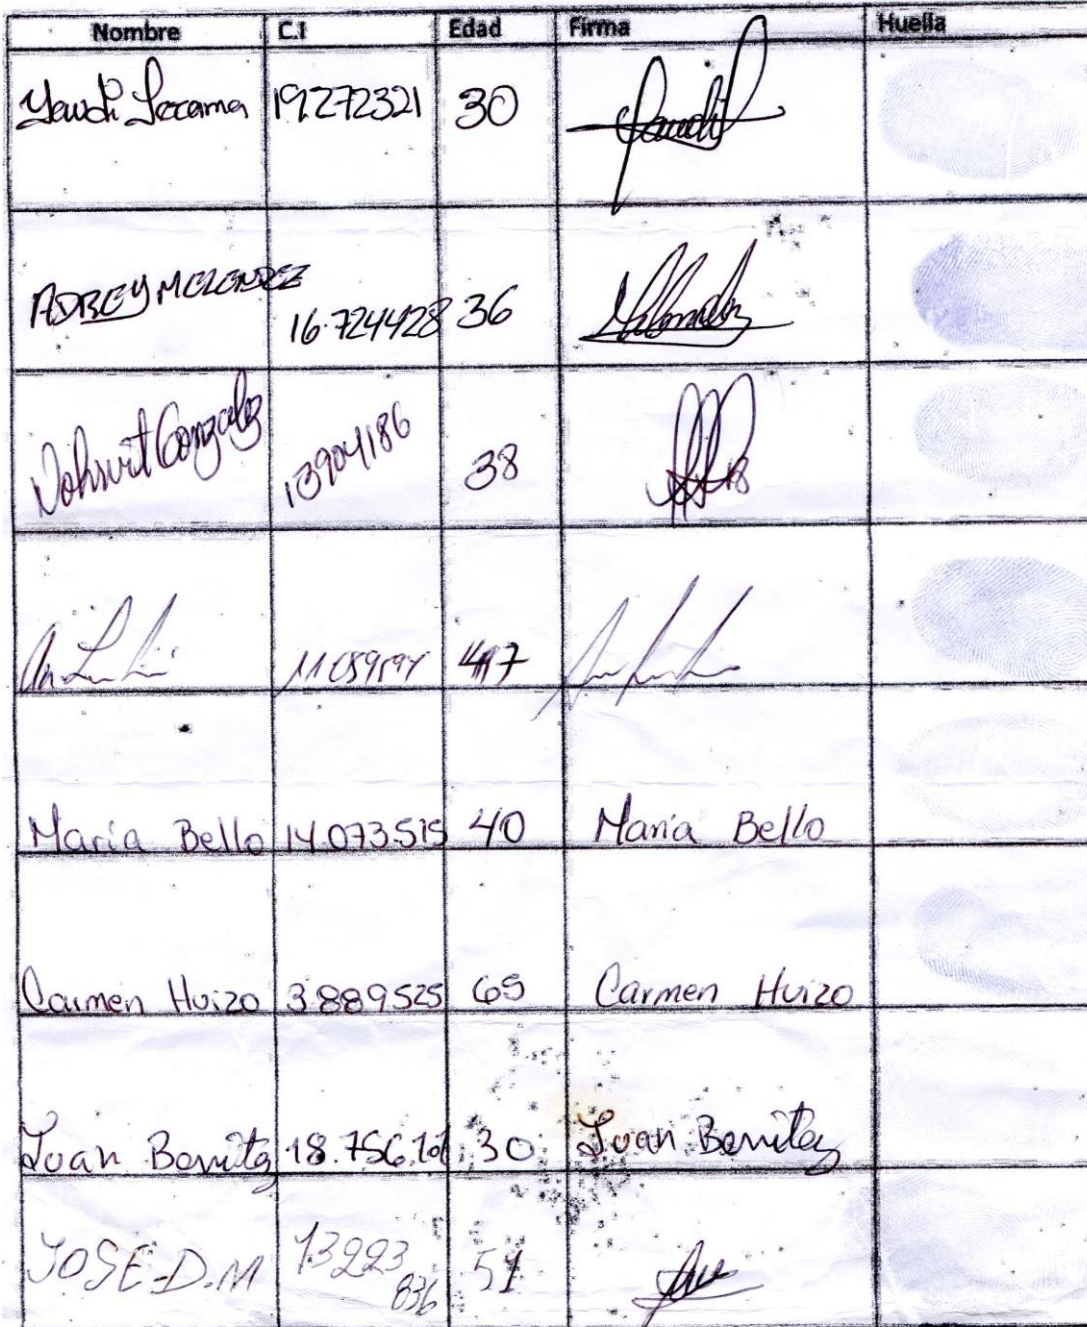 Nombre C.I Edad Firma Huella
Yaudi Lezama 19272321 30
ADREY MELENDEZ 16.724428 36
Gonzalez 13904186 38
47
Maria Bello 14.073.515 40 Maria Bello
Carmen Huizo 3.889525 65 Carmen Huizo
Juan Benitez 18.756. 30 Juan Benitez
JOSE-D.M 13223 51
836